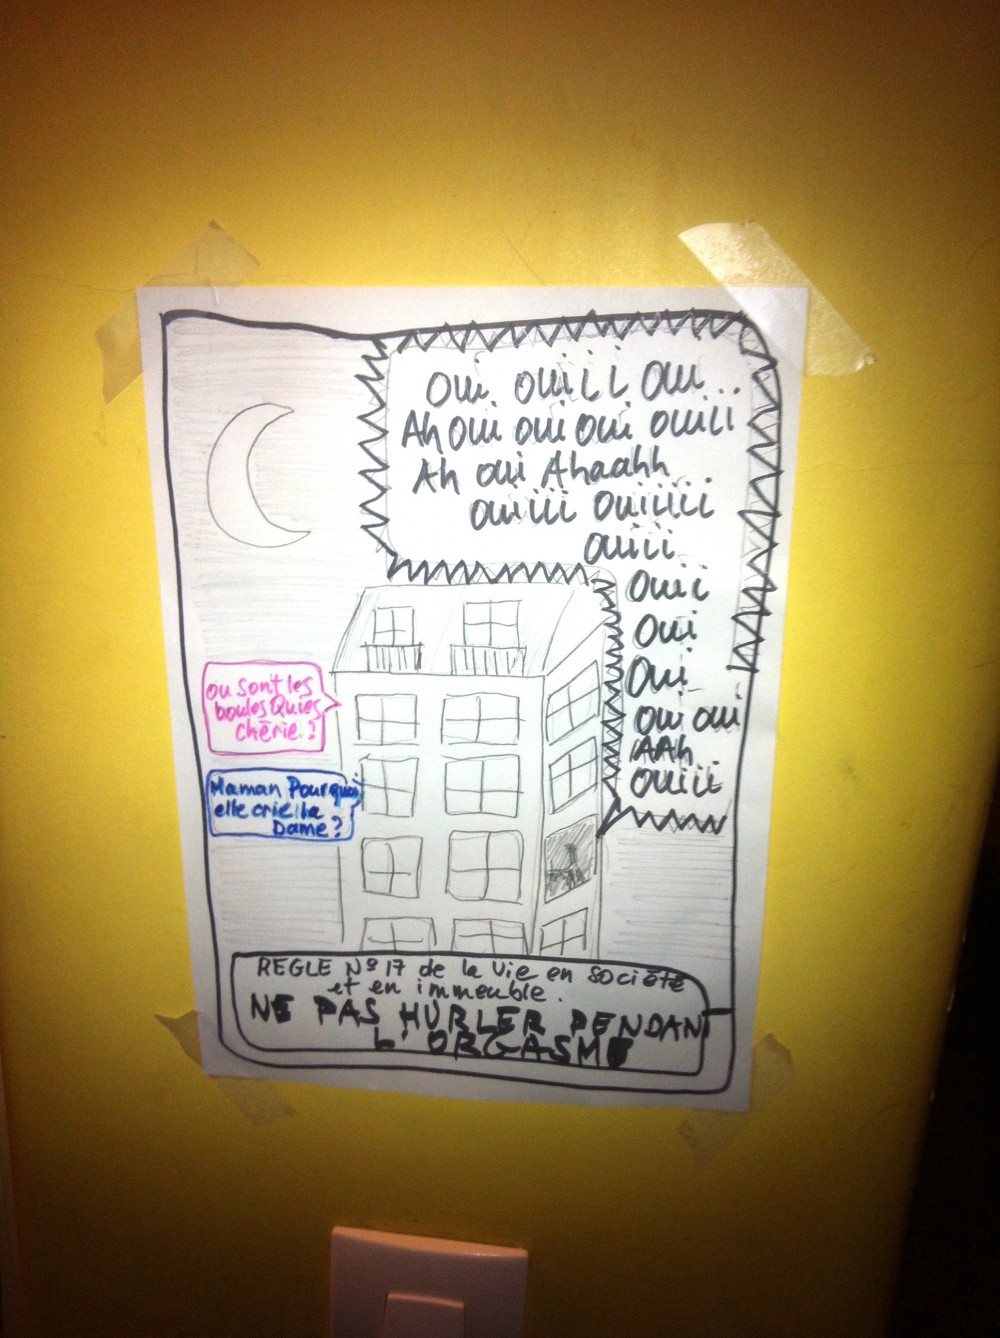 Oui ouiii oui...
Ah oui oui oui ouiii
Ah oui Ahaahh
ouiiii ouiiiii
ouiii
Ouii
Oui
Oui
Oui oui
AAh
Ouiii
ou sont les
boules Quies
chérie ?
Maman Pourquoi
elle crie la
Dame ?
REGLE N° 17 de la vie en société
et en immeuble.
NE PAS HURLER PENDANT
L'ORGASME